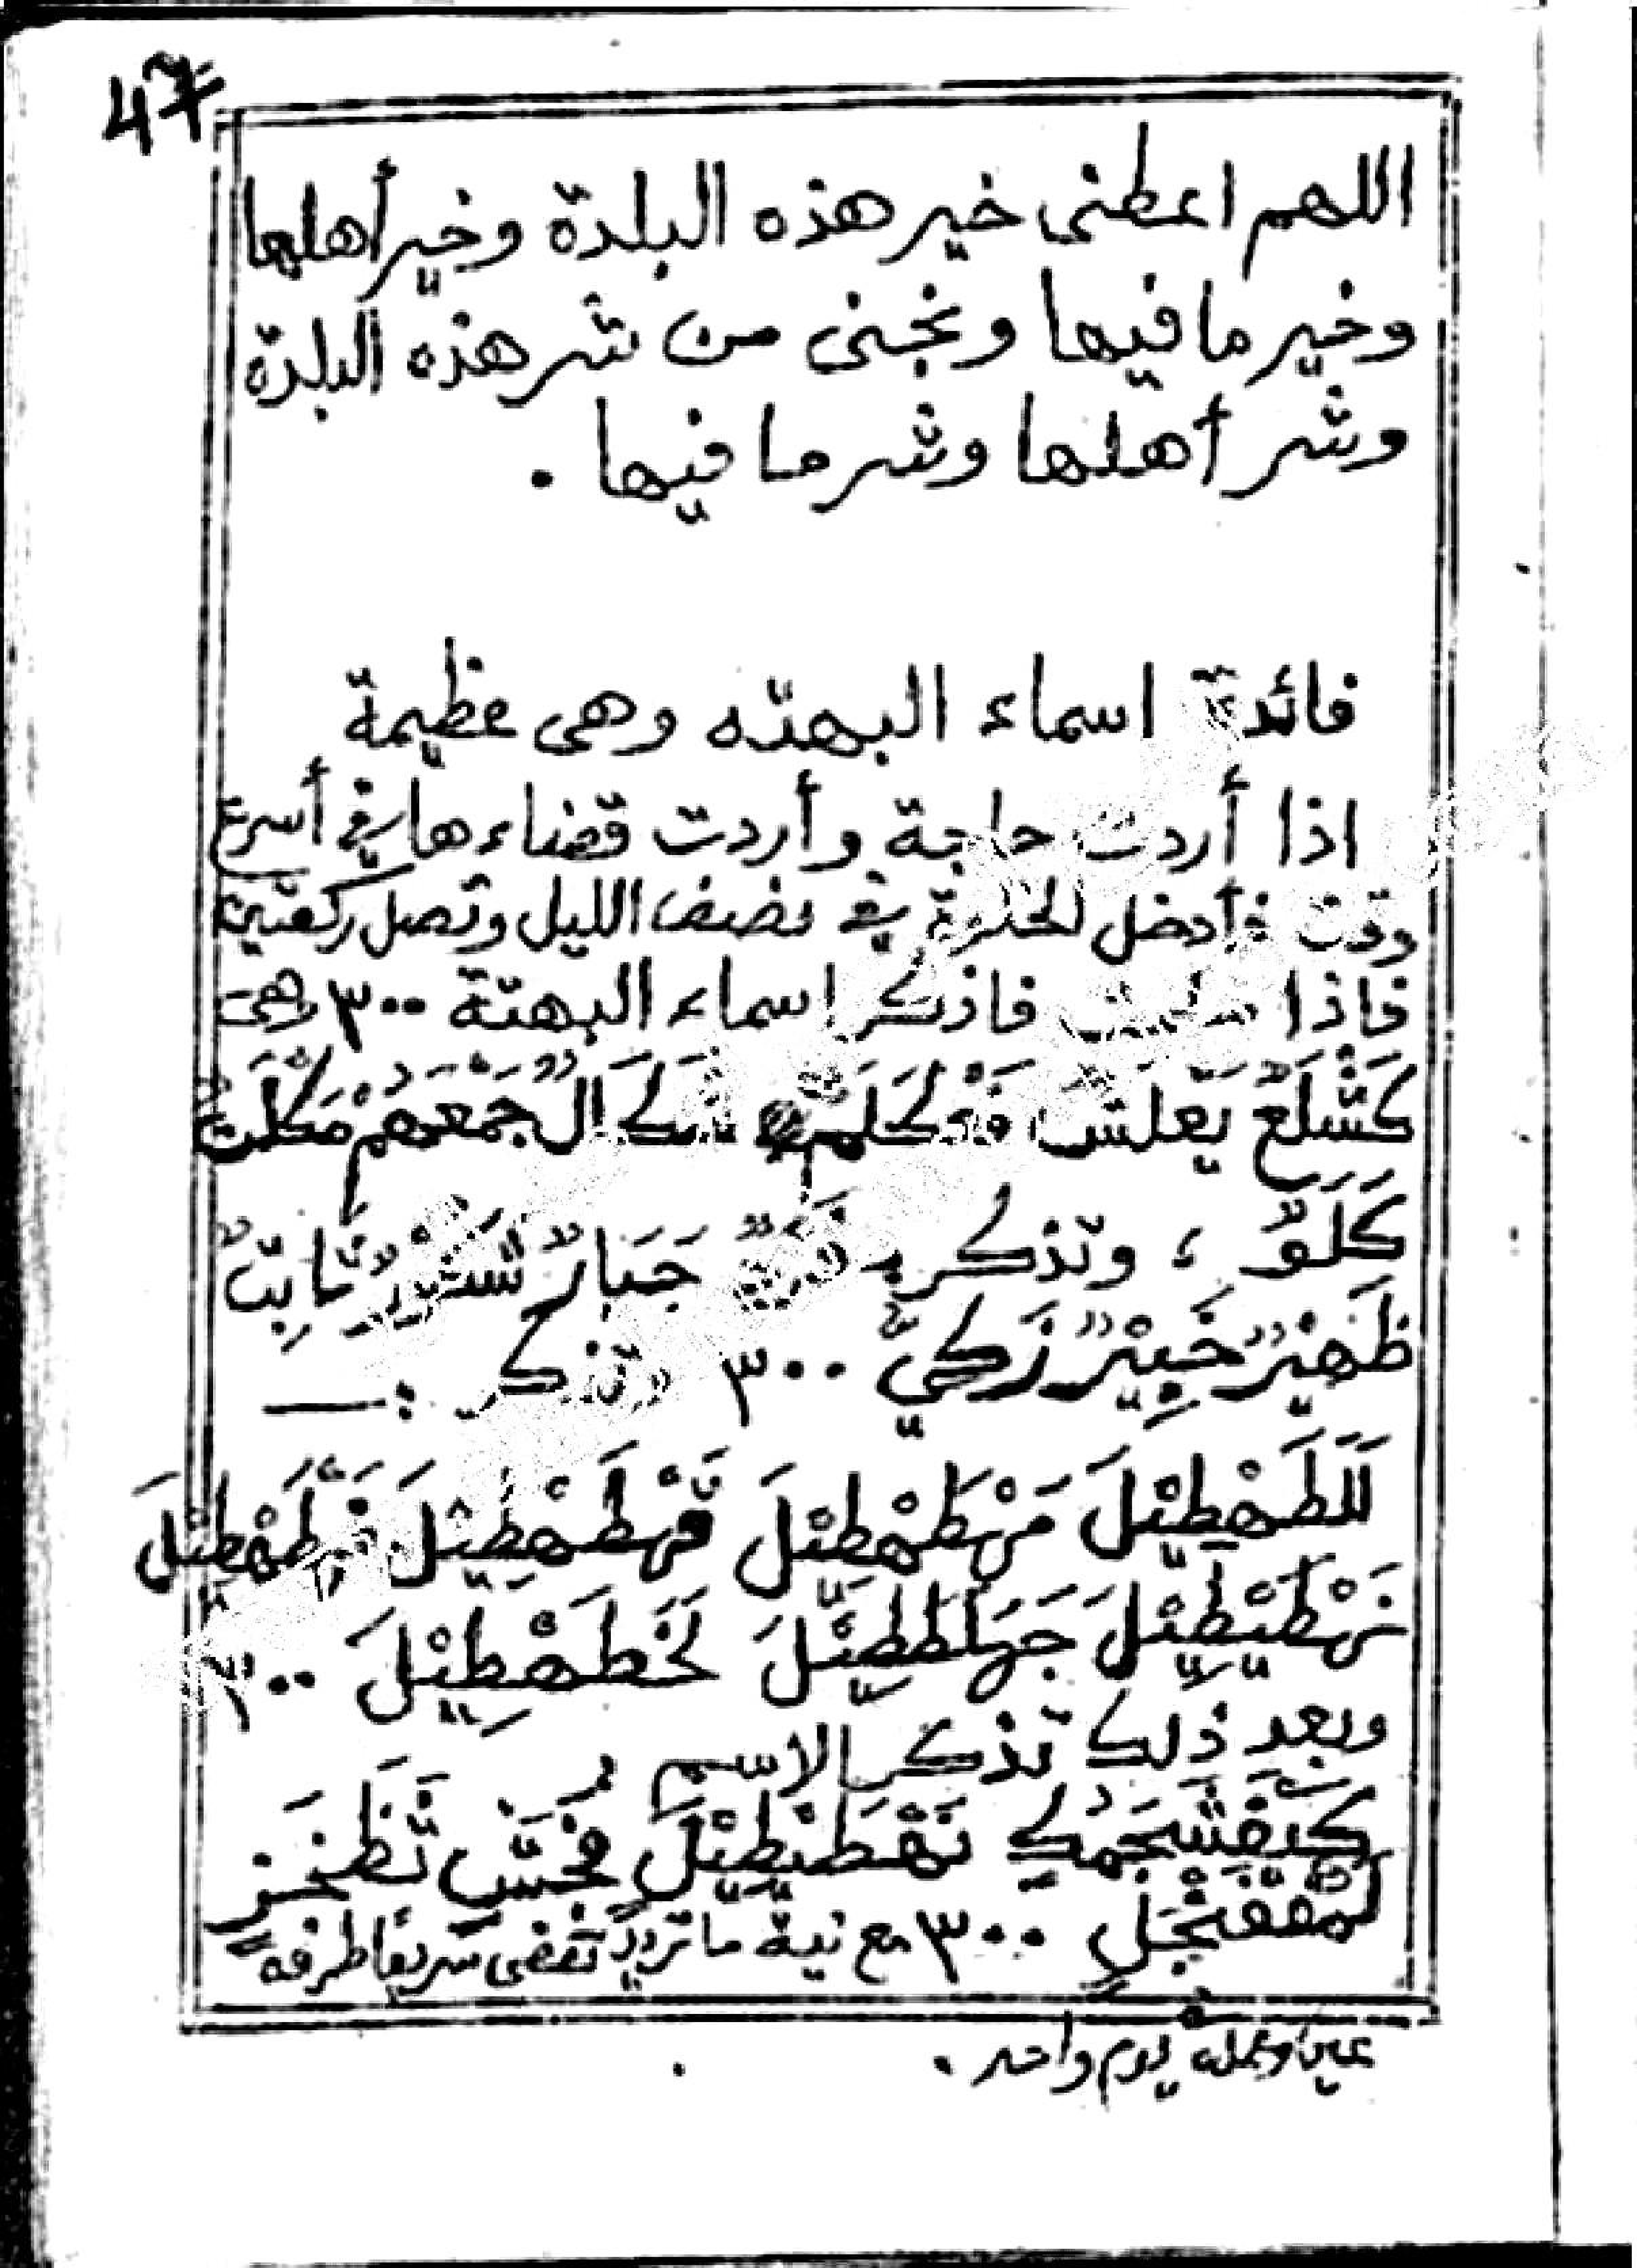 47
اللهم اعطنى خير هذه البلدة وخير أهلها
وخير ما فيها ونجنى من شر هذه البلدة
وشر أهلها وشر ما فيها .
فائدة اسماء البهته وهى عظيمة
اذا أردت حاجة وأردت قضاءها في أسرع
وقت فأدخل الخلوة في نصف الليل وتصل ركعتين
فاذا فاذكر اسماء البهتة ٣٠٠ وهى
كَشْلَعٌ يَعْلَشَ
كَلَعٌ ، وتذكر جَبَارٌ شَكُورٌ ثَابِتٌ
ظَهِيْرٌ خَبِيْرٌ زَكِيٌّ ٣٠٠ وتذكر :ـ
لَلَطَهْطِيْلَ مَهْطَهْطِيْلَ قَهْطَهْطِيْلَ فَهْطَهْطِيْلَ
نَهْطَيْطِيْلَ جَهْلَطَطِيْلَ لَخَطَهْطِيْلَ ٣٠٠
وبعد ذلك تذكر الاسم
نَهْطَيْطِيْلَ
٣٠٠ مع نية ما تريد تقضى سريعا طرفة
عين وعمله يوم واحد .